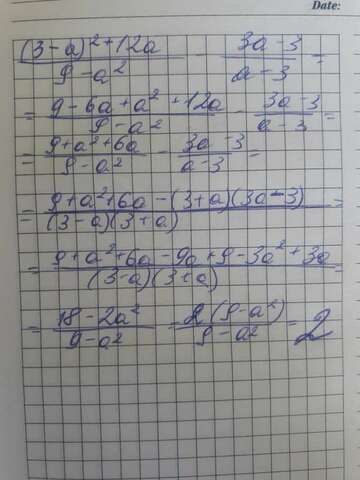 Date:
(3-a)²+12a / 9-a² - 3a-3 / a-3 =
= 9-6a+a²+12a / 9-a² - 3a-3 / a-3 =
= 9+a²+6a / 9-a² - 3a-3 / a-3 =
= 9+a²+6a-(3+a)(3a-3) / (3-a)(3+a) =
= 9+a²+6a-9a+9-3a²+3a / (3-a)(3+a) =
= 18-2a² / 9-a² = 2(9-a²) / 9-a² = 2